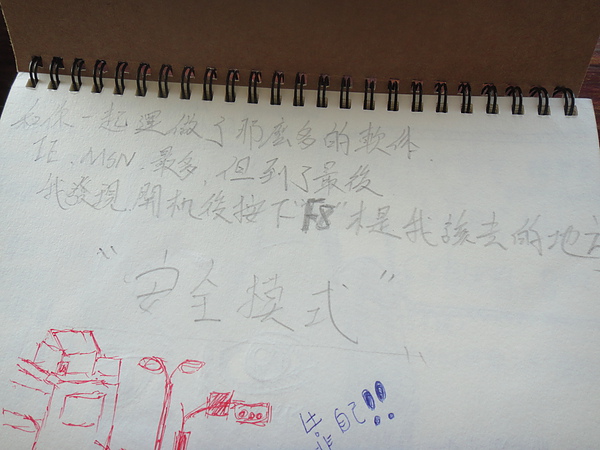 和你一起運做了那麼多的軟体.
IE、MSN、最多,但到了最後
我發現,開机後按下"F8"才是我該去的地方
"安全模式"
靠自己!!